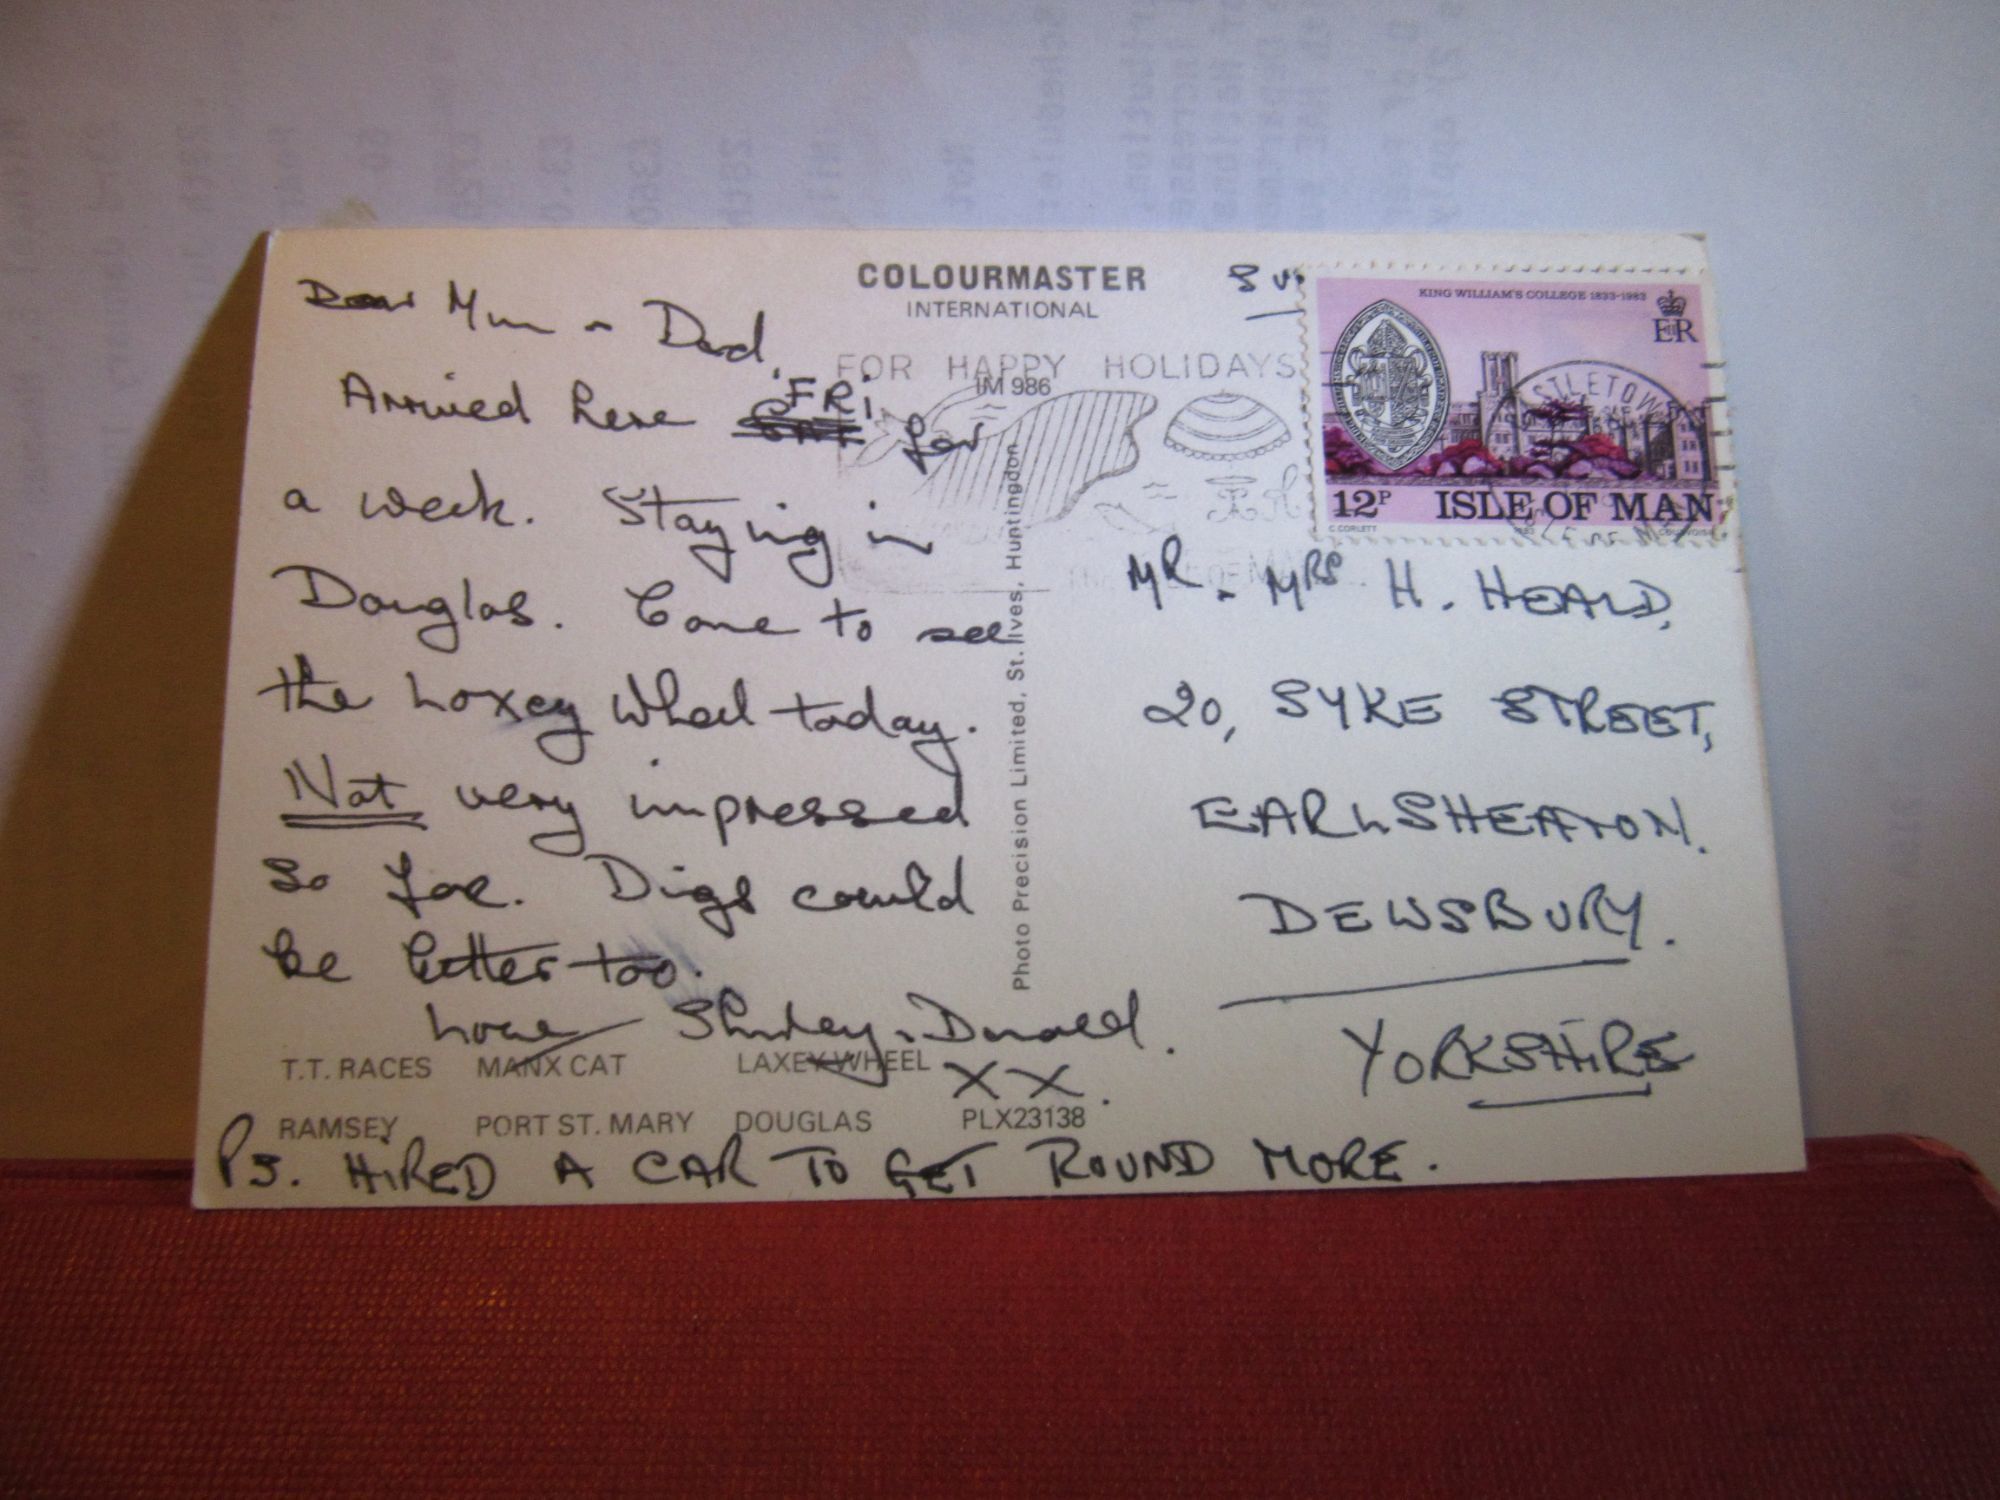 COLOURMASTER
INTERNATIONAL
Dear Mum & Dad,
Arrived here FRI for
a week. Staying in
Douglas. Came to see
the Laxey Wheel today.
Not very impressed
so far. Digs could
be better too.
Love Shirley & Donald.
XX.
PS. HIRED A CAR TO GET ROUND MORE.
FOR HAPPY HOLIDAYS
IM 986
Photo Precision Limited, St. Ives, Huntingdon
T.T. RACES MANX CAT LAXEY WHEEL
RAMSEY PORT ST. MARY DOUGLAS PLX23138
KING WILLIAM'S COLLEGE 1833-1983
EIIR
12P ISLE OF MAN
C. CORLETT
MR & MRS H. HEALD,
20, SYKE STREET,
EARLSHEATON.
DEWSBURY.
YORKSHIRE